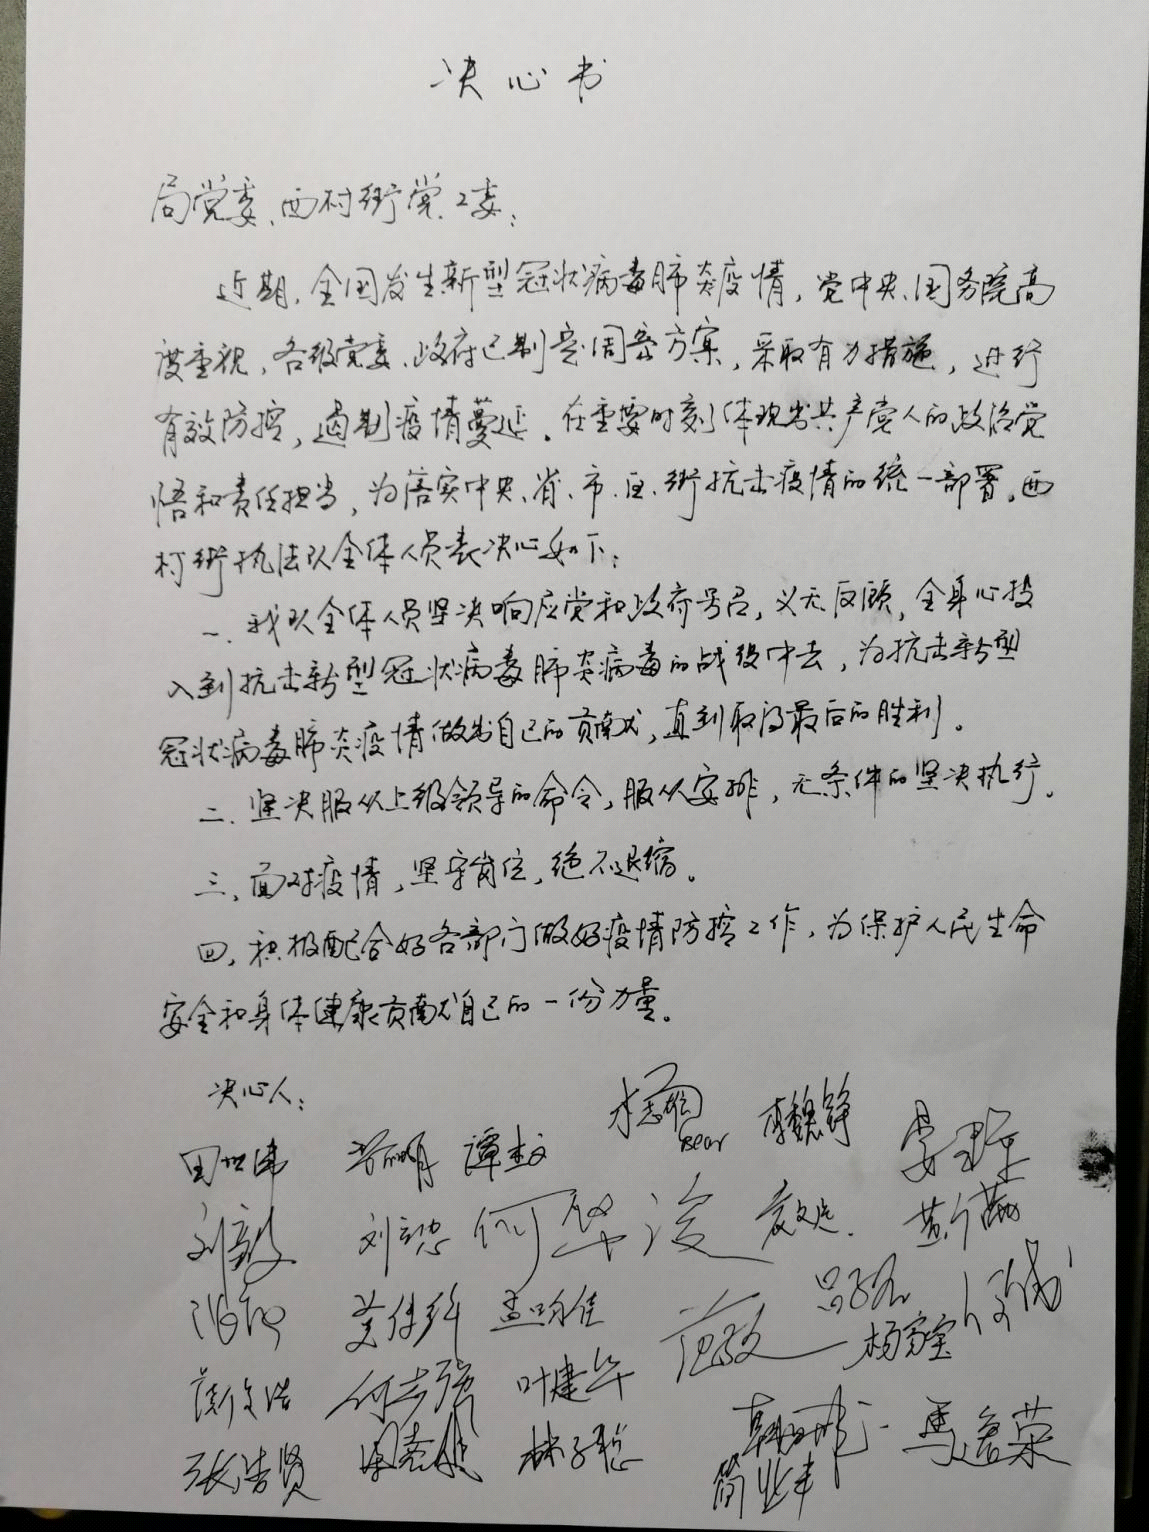 决心书
局党委、西村街党工委：
近期，全国发生新型冠状病毒肺炎疫情，党中央、国务院高
度重视，各级党委、政府已制定周密方案，采取有力措施，进行
有效防控，遏制疫情蔓延。在重要时刻体现出共产党人的政治觉
悟和责任担当，为落实中央、省、市、区、街抗击疫情的统一部署。西
村街执法队全体人员表决心如下：
一、我队全体人员坚决响应党和政府号召，义无反顾，全身心投
入到抗击新型冠状病毒肺炎病毒的战役中去，为抗击新型
冠状病毒肺炎疫情做出自己的贡献，直到取得最后的胜利。
二、坚决服从上级领导的命令，服从安排，无条件的坚决执行。
三、面对疫情，坚守岗位，绝不退缩。
四、积极配合好各部门做好疫情防控工作，为保护人民生命
安全和身体健康贡献自己的一份力量。
决心人：
李魏铮
谭
刘毅 刘志 何华浚
叶建华 杨家宝
张浩贤 林子聪 简业丰 荣